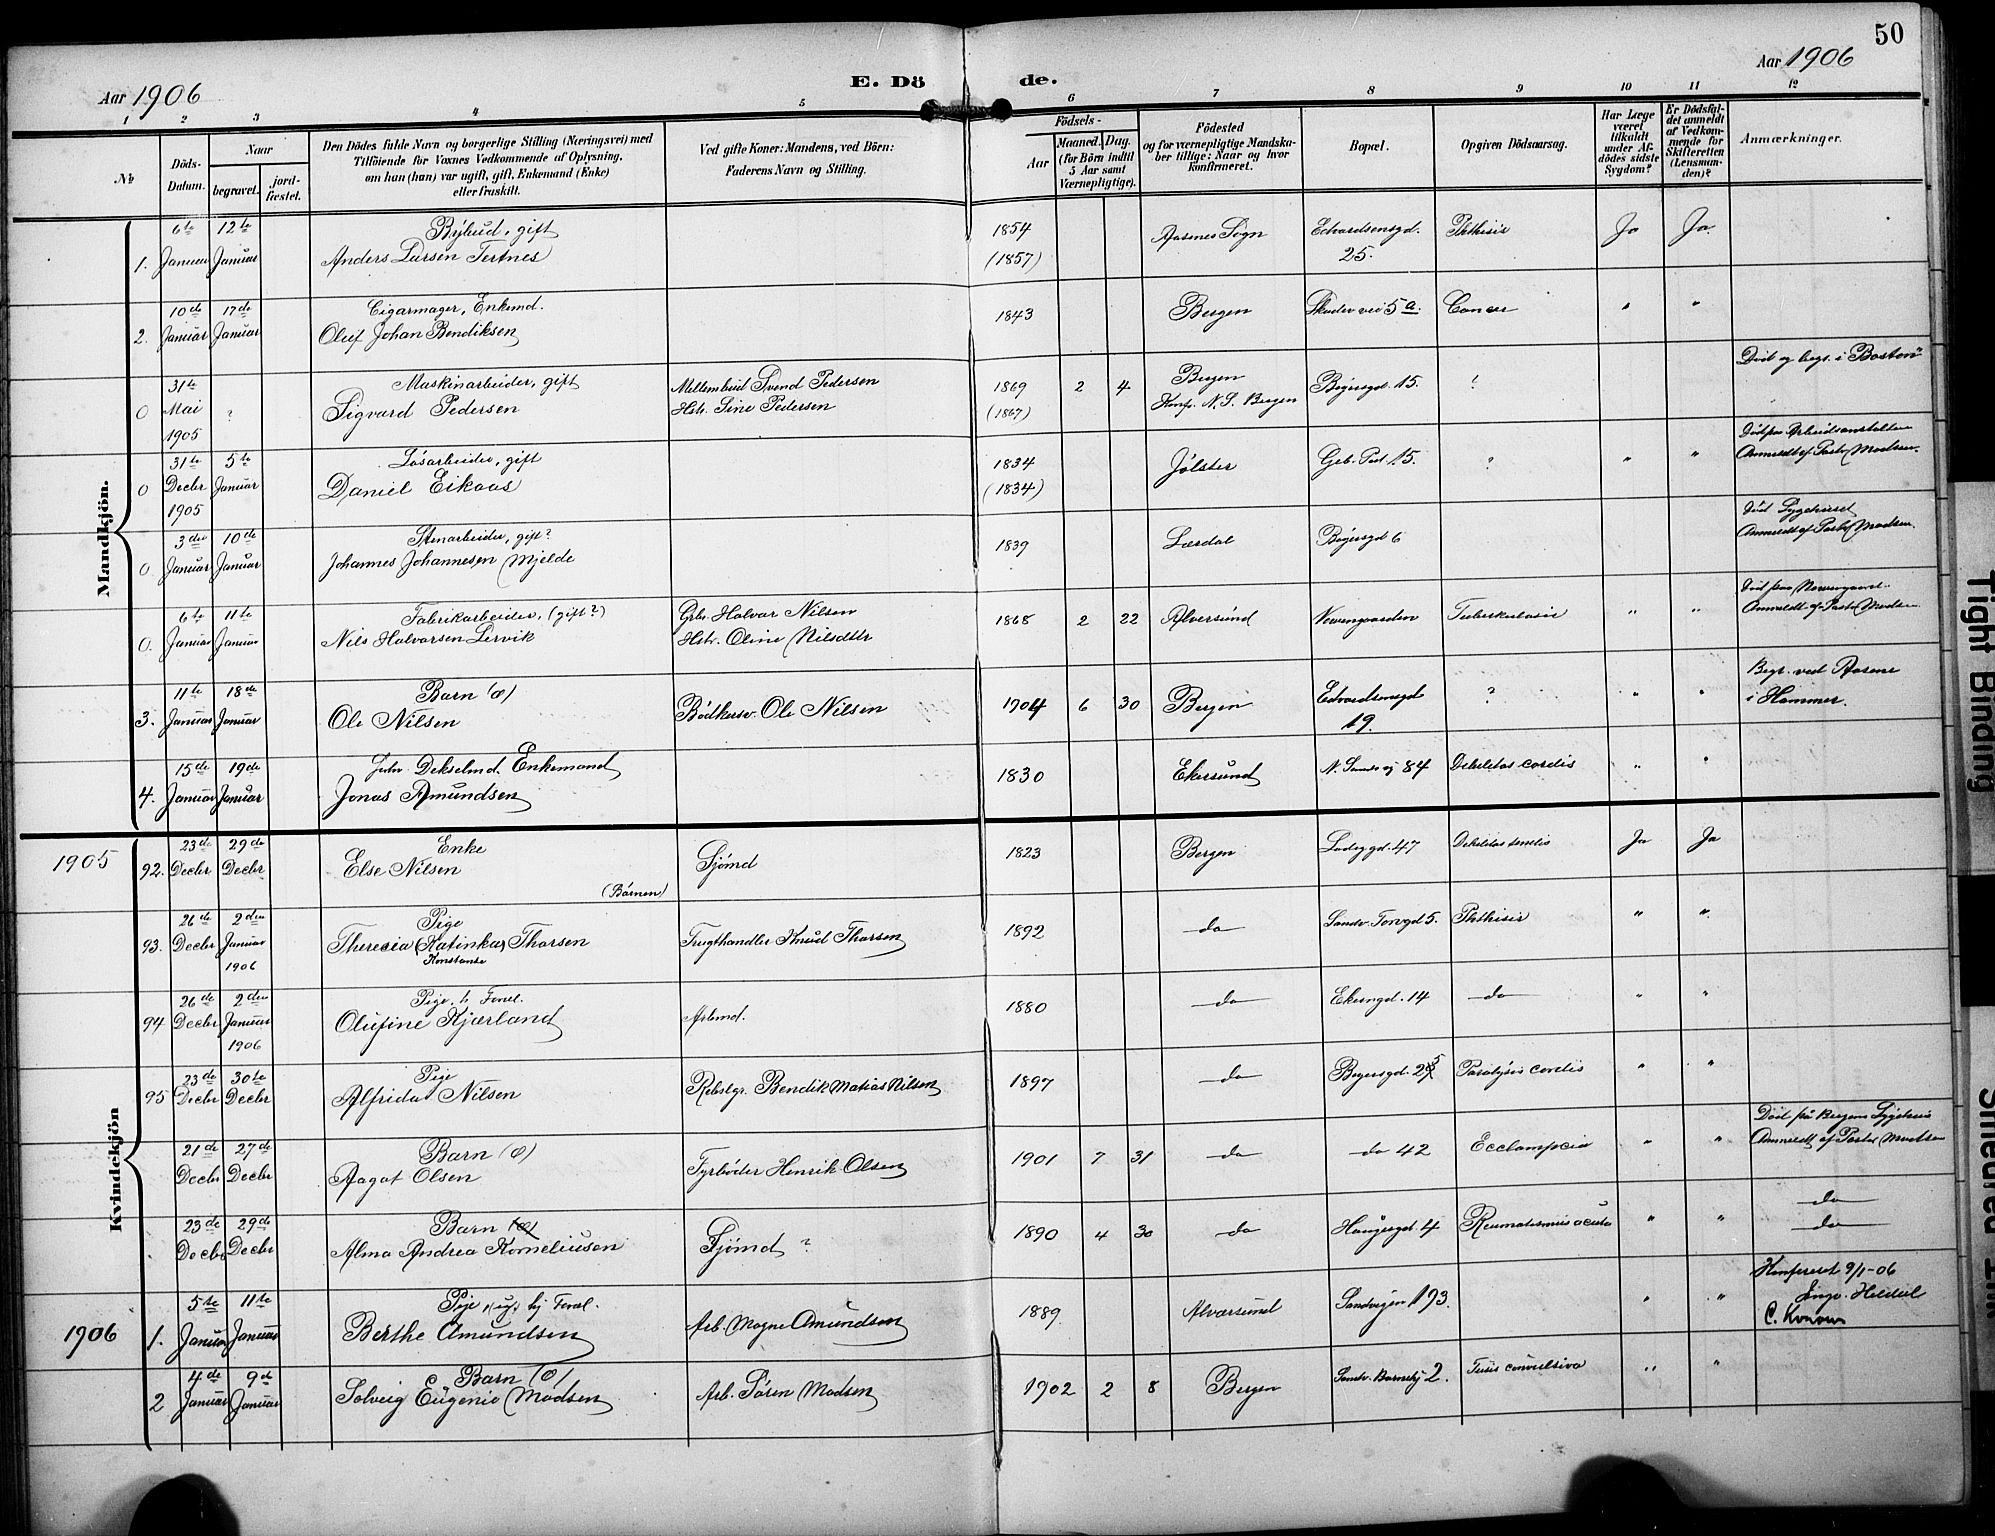 50
Aar 1906
E. Dö de.
Aar 1906
1 2 3 4 5 6 7 8 9 10 11 12
No
Döds-
Datum.
Naar
begravet.
jord-
fæstet.
Den Dödes fulde Navn og borgerlige Stilling (Næringsvei) med
Tilföiende for Voxnes Vedkommende af Oplysning,
om han (hun) var ugift, gift, Enkemand (Enke)
eller fraskilt.
Ved gifte Koner: Mandens, ved Börn:
Faderens Navn og Stilling.
Födsels-
Aar
Maaned. Dag.
(for Börn indtil
5 Aar samt
Værnepligtige).
Födested
og for værnepligtige Mandska-
ber tillige: Naar og hvor
konfirmeret.
Bopæl.
Opgiven Dödsaarsag.
Har Læge
været
tilkaldt
under Af-
dödes sidste
Sygdom?
Er Dödsfal-
det anmeldt
af Vedkom-
mende for
Skifteretten
(Lensman-
den)?
Anmærkninger.
Mandkjön.
6te 12te Bybud, gift 1854 Aasnes Sogn Edvardsensgd. Phthisis Ja Ja.
1. Januar Januar Anders Larsen Tertnes (1857) 25.
10de 17de Cigarmager, Enkemd.
2. Januar Januar Oluf Johan Bendiksen 1843 Bergen 5a. Cancer " "
Död og begr. i Boston
31te Maskinarbeider, gift Mellembud Svend Pedersen 1869 2 4 Bergen Bøiersgd. 15. ?
0 Mai ? Sigvard Pedersen Hstr. Sine Pedersen (1867) Konf. N. S. Bergen
1905
Död paa Arbeidsanstalten
31te 5te Løsarbeider, gift 1834 Jølster 15. ? " " Anmeldt af Pastor Madsen.
0 Decbr Januar Daniel Eikaas (1834)
1905
Død Sygehuset
3die 10de Stenarbeider, gift? 1839 Lærdal Bøiersgd 6 Anmeldt af Pastor Madsen.
0 Januar Januar Johannes Johannesen Mjelde
Død paa
6te 11te Fabrikarbeider, (gift?) Grbr. Halvar Nilsen 1868 2 22 Alversund Tuberkulosis " " Anmeldt af Pastor Madsen
0. Januar Januar Nils Halvorsen Lervik Hstr. Oline Nilsdttr
11te 18de Barn (æ) Begr. ved Aasene
3. Januar Januar Ole Nilsen Bødkersv. Ole Nilsen 1904 6 30 Bergen Edvardsensgd ? " " i Hammer.
19.
15de 19de Enkemand
4. Januar Januar Jonas Amundsen 1830 Ekersund 84 Debilitas cordis " "
Kvindekjön
1905
23de 29de Enke
92. Decbr Decbr Else Nilsen Sjømd 1823 Bergen Ladeggd. 47 Debilitas senilis Ja Ja
(Börnen)
26de 2den Pige
93. Decbr Januar Therecia (Katinka) Thorsen Frugthandler Knud Thorsen 1892 do Sandv. Torvgd 5. Phthisis " "
1906 Konstanse
26de 2den Pige, h. Foræl.
94 Decbr Januar Olufine Kjærland Arbmd. 1880 do Ekerngd. 14 do " "
1906
23de 30te Pige
95 Decbr Decbr Alfrida Nilsen Rebslgr. Bendik Matias Nilsen 1897 do Bøyersgd. 25 Paralysis cordis " "
Död på Bergens Sygehus
21de 27de Barn (æ) Anmeldt af Pastor Madsen
Decbr Decbr Aagot Olsen Fyrbøder Henrik Olsen 1901 7 31 do do 42 Ecclampsia " "
23de 29de Barn (æ) do
Decbr Decbr Alma Andrea Korneliusen Sjømd ? 1890 4 30 do Haugegd. 4 Reumatismus acuta " " do
5te 11te Pige ug. hj Foræl. Konfereret 9/1-06
1906 1. Januar Januar Berthe Amundsen Arb. Mogne Amundsen 1889 Alversund Sandvigen 193. " " Ingv. Heldal
C. Konow
4de 9de Barn (æ)
2 Januar Januar Solveig Eugenie Madsen Arb. Søren Madsen 1902 2 8 Bergen 2. Tusis convulsiva " "
Tight Binding
Smeared Ink